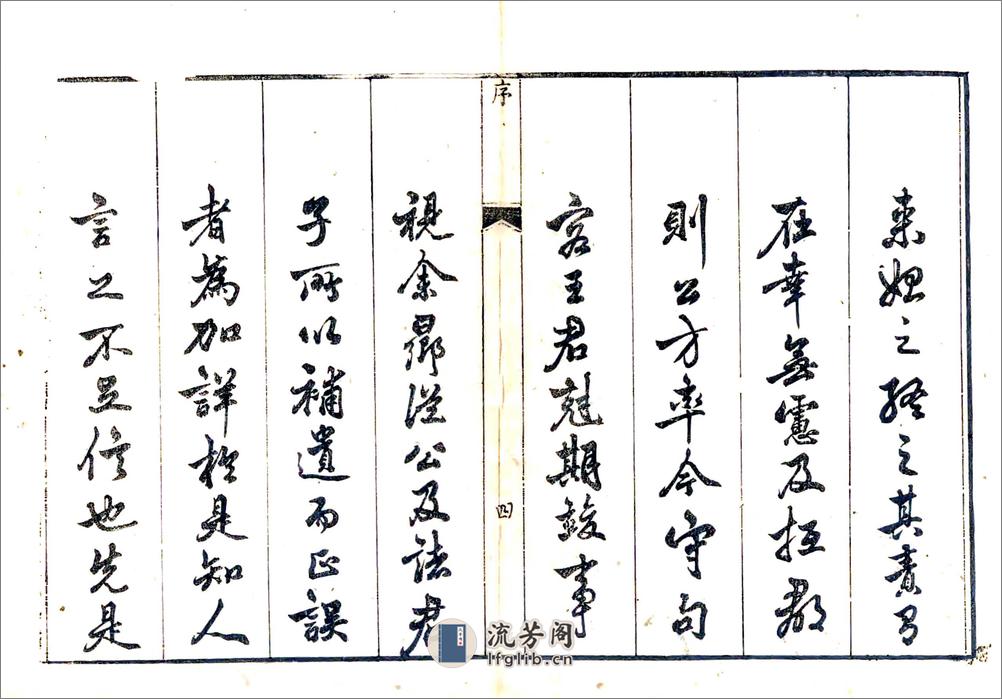 來
之
之其責
在幸無慮及抵郡
則公方率今守句
容王君魁期竣事
視余
從公及諸君
子所以補遺而正誤
者為加詳於是知人
言之不足信也先是
序
四
流芳阁
lfglib.cn